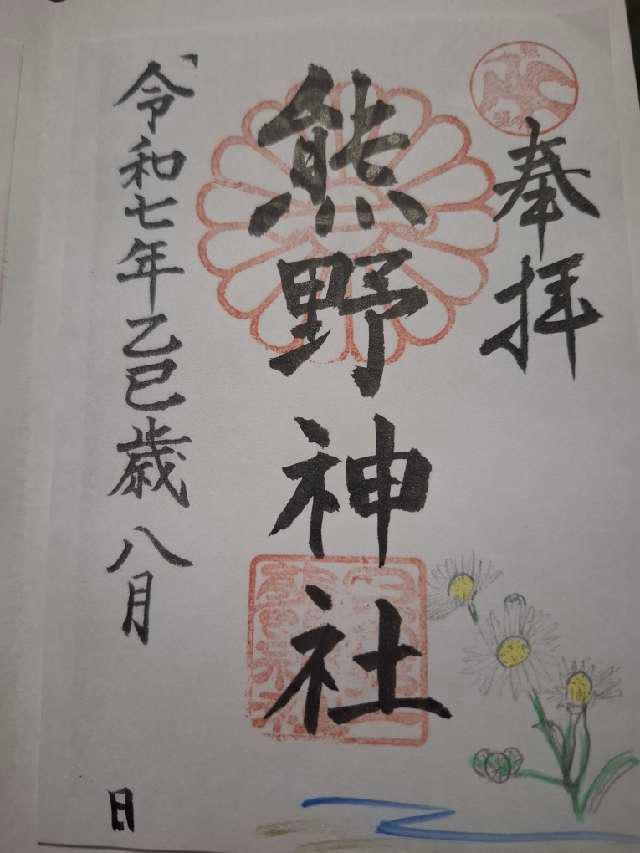 奉拝
熊野神社
令和七年乙巳歳八月
日